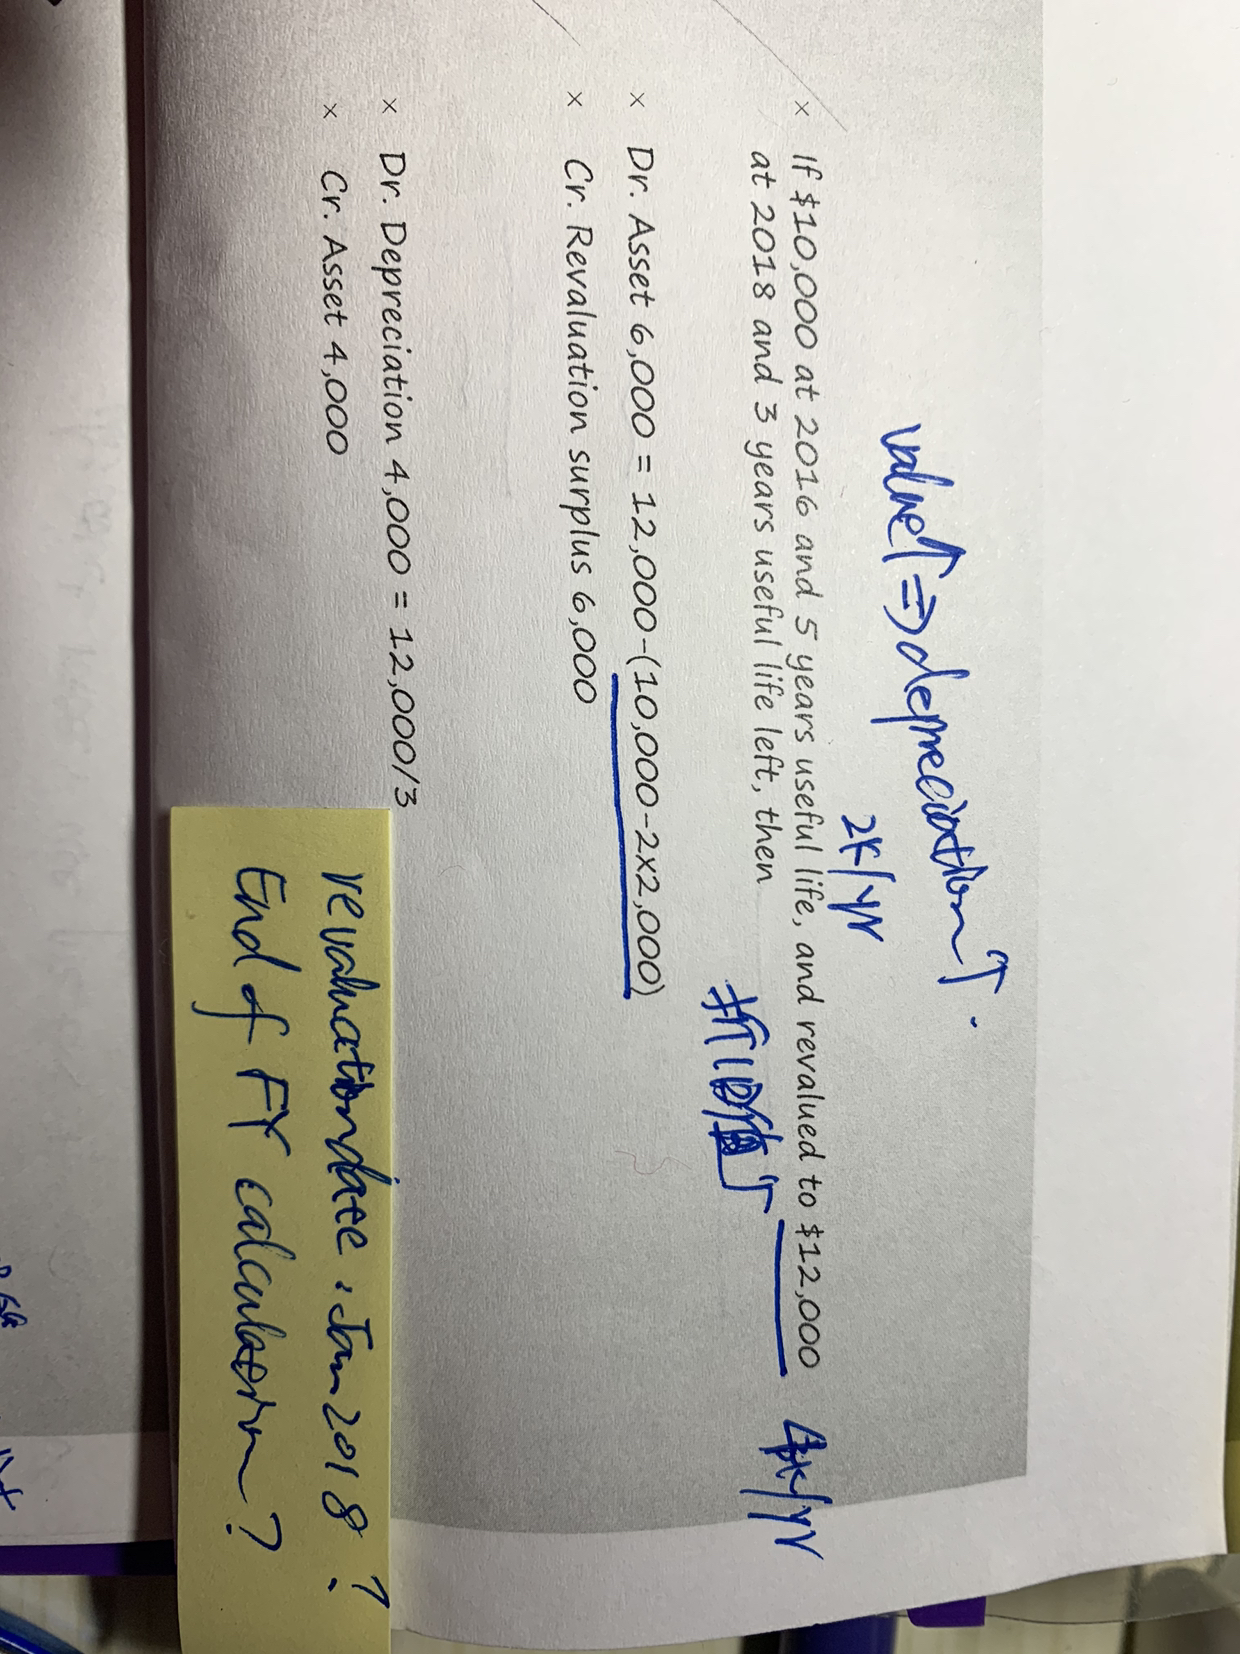 value↑ ⇒ depreciation↑.
2K/yr
× If $10,000 at 2016 and 5 years useful life, and revalued to $12,000
4K/yr
at 2018 and 3 years useful life left, then
折旧价值↑
× Dr. Asset 6,000 = 12,000-(10,000-2x2,000)
× Cr. Revaluation surplus 6,000
× Dr. Depreciation 4,000 = 12,000/3
× Cr. Asset 4,000
revaluation date . Jan 2018 ?
End of FY calculation ?